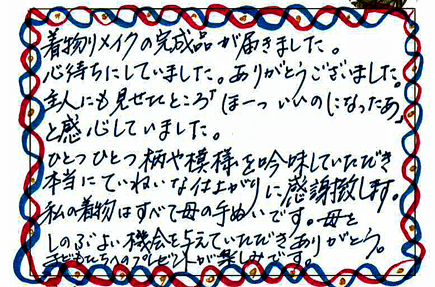 着物リメイクの完成品が届きました。
心待ちにしていました。ありがとうございました。
主人にも見せたところ「ほーっ いいのになったあ」
と感心していました。
ひとつひとつ柄や模様を吟味していただき
本当にていねいな仕上がりに感謝致します。
私の着物はすべて母の手ぬいです。母を
しのぶよい機会を与えていただきありがとう。
子どもたちへのプレゼントが楽しみです。